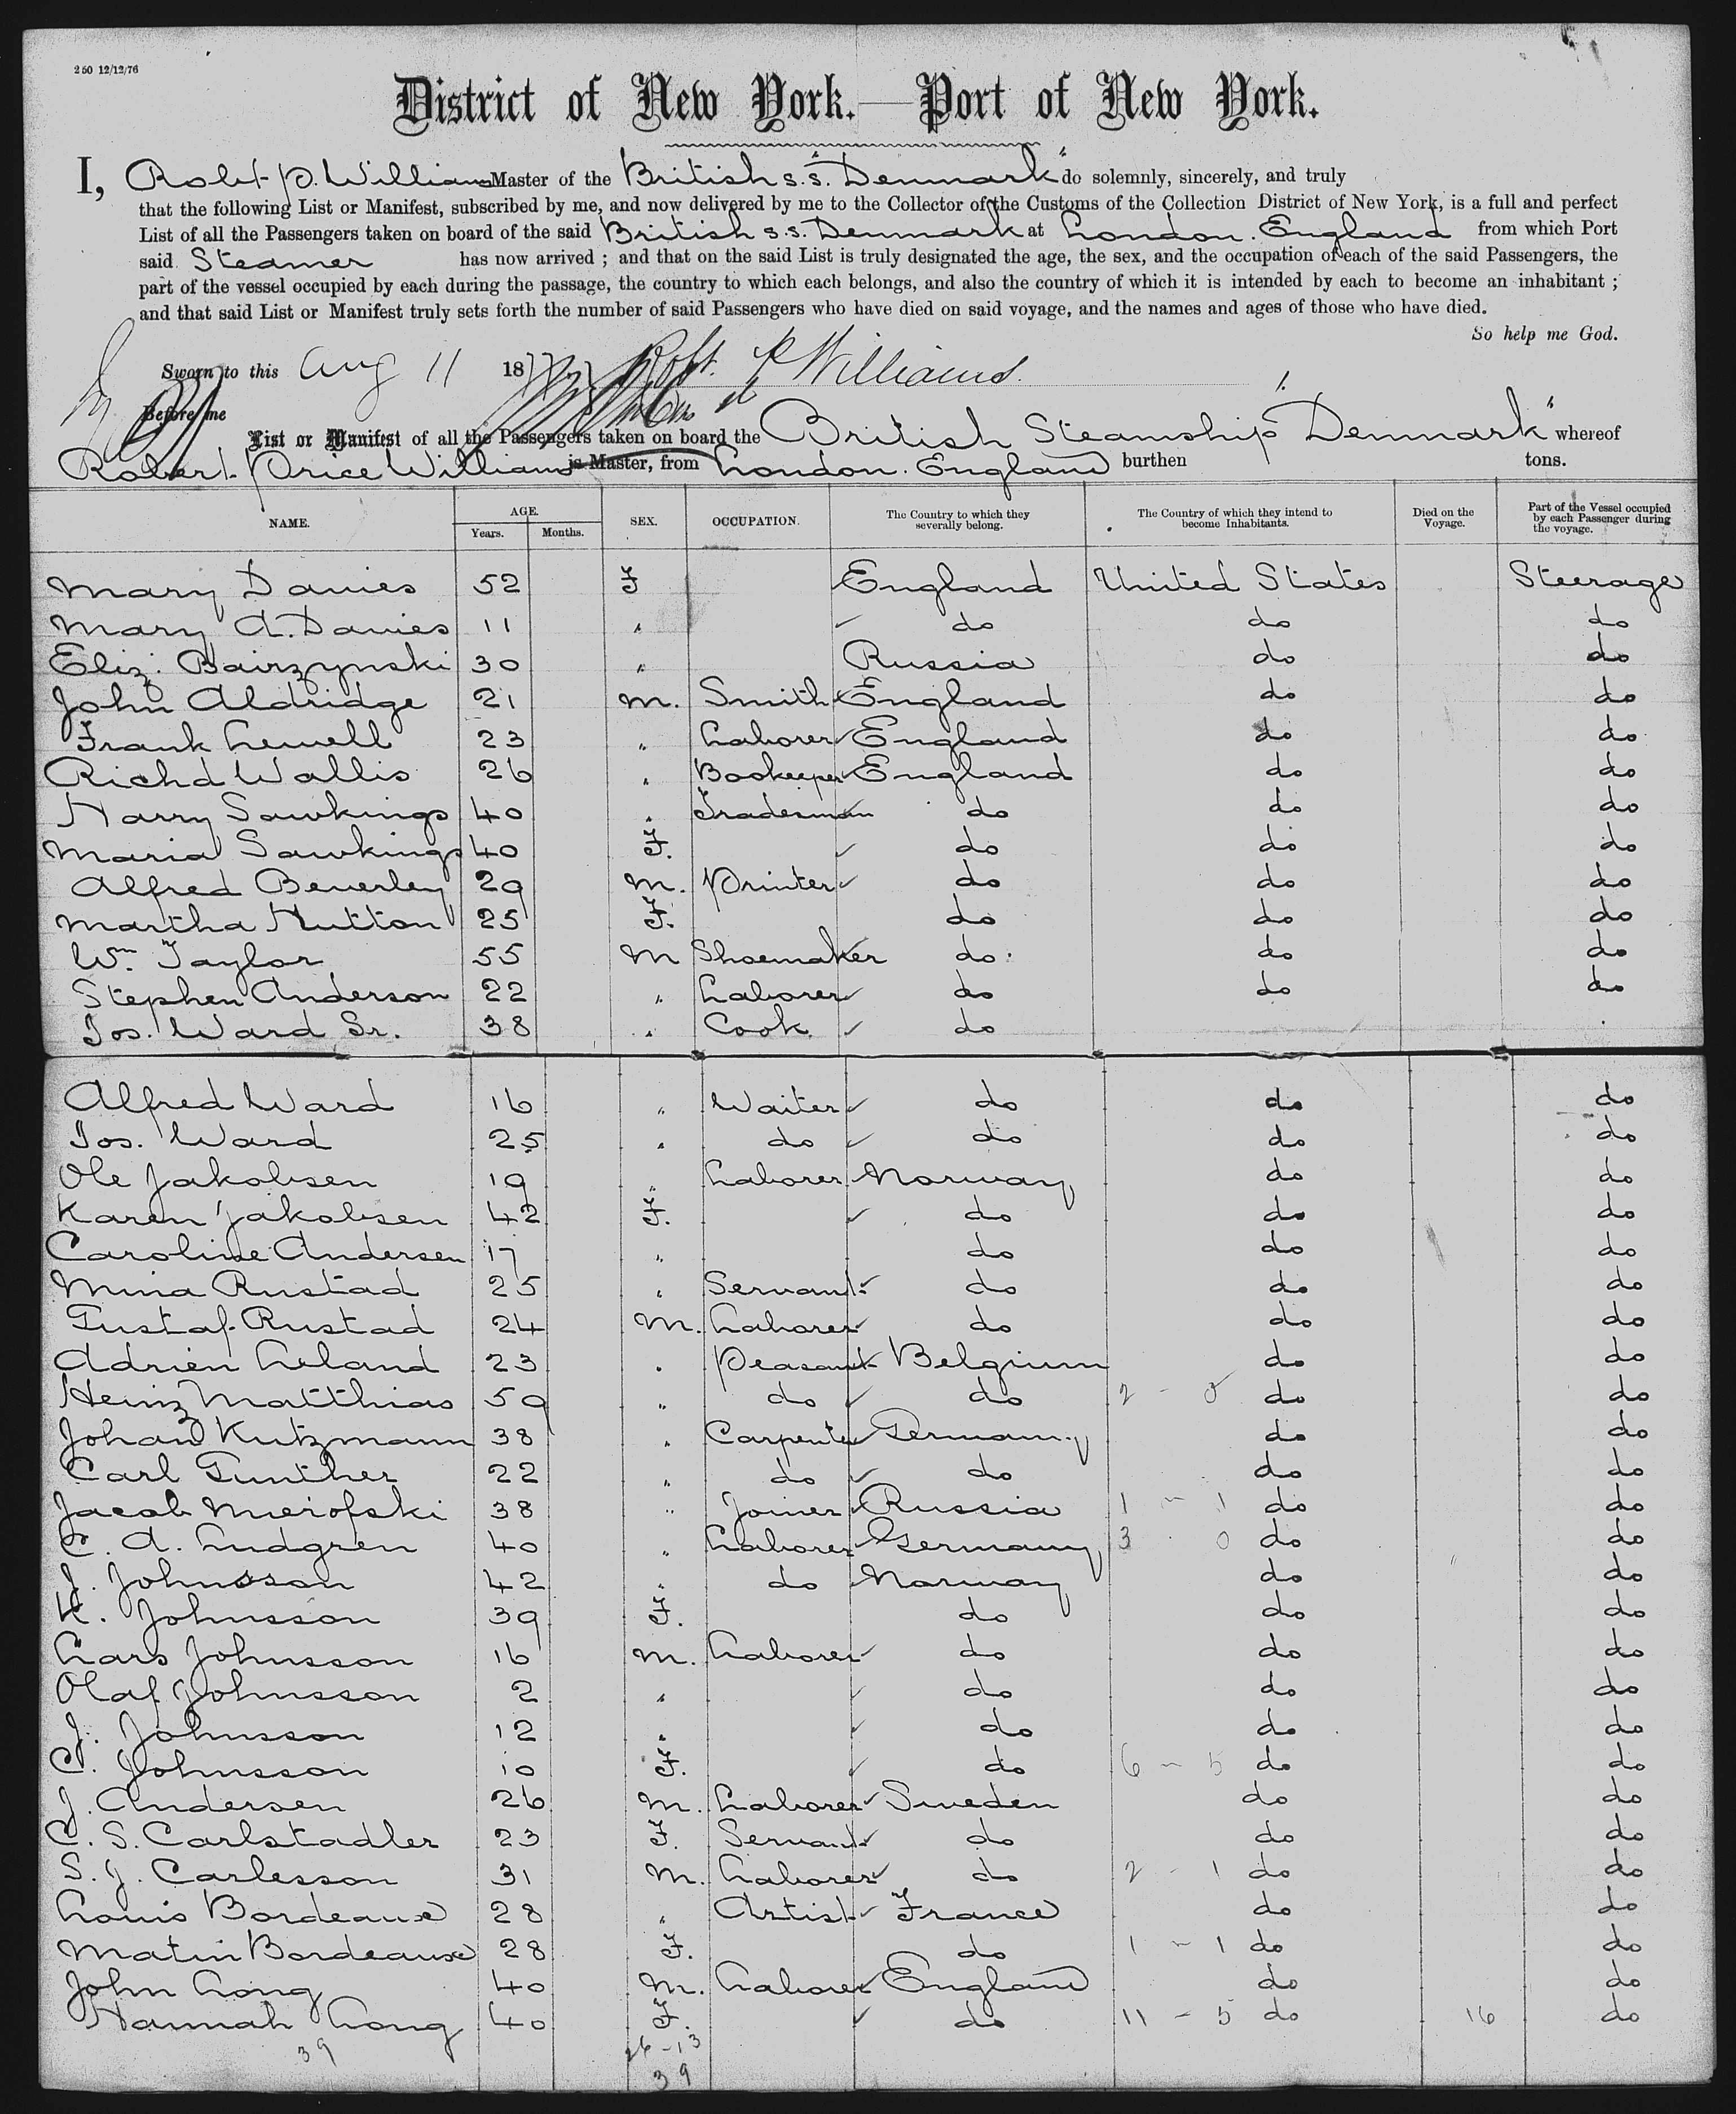 250 12/12/76
District of New York.—Port of New York.
I, Robt P. Williams Master of the British s.s. "Denmark" do solemnly, sincerely, and truly
that the following List or Manifest, subscribed by me, and now delivered by me to the Collector of the Customs of the Collection District of New York, is a full and perfect
List of all the Passengers taken on board of the said British s.s. Denmark at London. England from which Port
said Steamer has now arrived ; and that on the said List is truly designated the age, the sex, and the occupation of each of the said Passengers, the
part of the vessel occupied by each during the passage, the country to which each belongs, and also the country of which it is intended by each to become an inhabitant ;
and that said List or Manifest truly sets forth the number of said Passengers who have died on said voyage, and the names and ages of those who have died.
So help me God.
Sworn to this Aug 11 1877 Robt. P Williams.
Before me
List or Manifest of all the Passengers taken on board the British Steamship "Denmark" whereof
Robert Price Williams is Master, from London. England burthen tons.
NAME. AGE. Years. Months. SEX. OCCUPATION. The Country to which they severally belong. The Country of which they intend to become Inhabitants. Died on the Voyage. Part of the Vessel occupied by each Passenger during the voyage.
Mary Davies 52 F England United States Steerage
Mary A. Davies 11 " do do do
Eliz. Bairzynski 30 " Russia do do
John Aldridge 21 M. Smith England do do
Frank Lewell 23 " Laborer England do do
Richd Wallis 26 " Bookeeper England do do
Harry Sawkings 40 " Tradesman do do do
Maria Sawkings 40 F. do do do
Alfred Beverley 29 M. Printer do do do
Martha Hutton 25 F. do do do
Wm. Taylor 55 M Shoemaker do do do
Stephen Anderson 22 " Laborer do do do
Jos. Ward Sr. 38 " Cook do
Alfred Ward 16 " Waiter do do do
Jos. Ward 25 " do do do do
Ole Jakobsen 19 " Laborer Norway do do
Karen Jakobsen 42 F. do do do
Caroline Andersen 17 " do do do
Mina Rustad 25 " Servant do do do
Gustaf Rustad 24 M. Laborer do do do
Adrien Leland 23 " Peasant Belgium do do
Heinz Matthias 59 " do do 2 - 0 do do
Johan Kutzmann 38 " Carpenter Germany do do
Carl Gunther 22 " do do do do
Jacob Mierofski 38 " Joiner Russia 1 - 1 do do
C. A. Ludgren 40 " Laborer Germany 3 . 0 do do
J. Johnsson 42 " do Norway do do
K. Johnsson 39 F. do do do
Lars Johnsson 16 M. Laborer do do do
Olaf Johnsson 2 " do do do
J. Johnsson 12 " do do do
C. Johnsson 10 F. do 6 - 5 do do
J. Andersen 26 M. Laborer Sweden do do
C. S. Carlstadler 23 F. Servant do do do
S. J. Carlesson 31 M. Laborer do 2 - 1 do do
Louis Bordeaux 28 " Artist France do do
Matin Bordeaux 28 F. do 1 - 1 do do
John Long 40 M. Laborer England do do
Hannah Long 40 F. do 11 - 5 do 16 do
39 26-13
39